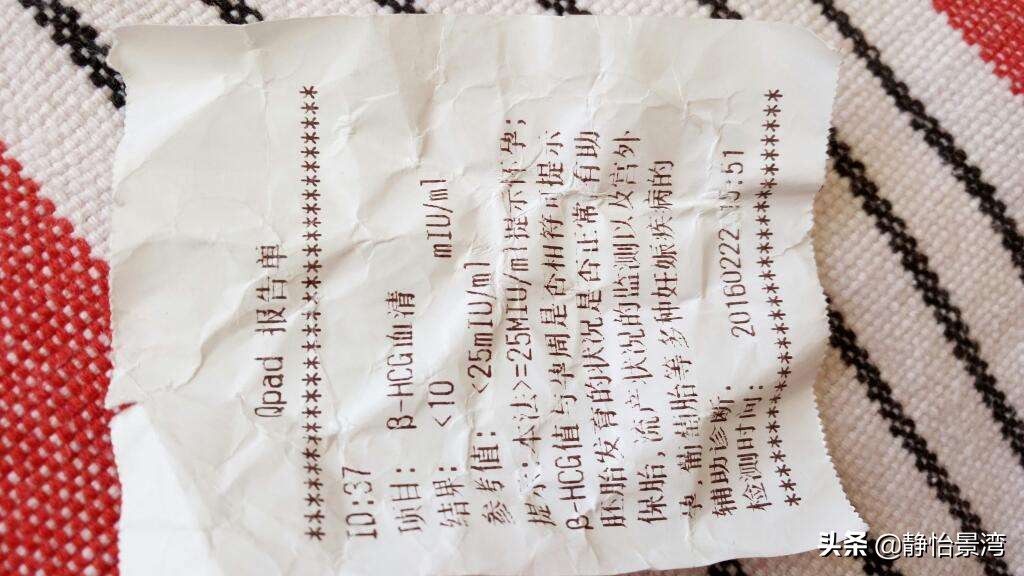 Qpad 报告单
********************************
ID:37
项目: β-HCG血清
结果: <10 mIU/ml
参考值: <25mIU/ml
提示:本法>=25MIU/ml提示怀孕;
β-HCG值与孕周是否相符可提示
胚胎发育的状况是否正常,有助
保胎,流产状况的监测以及宫外
孕,葡萄胎等多种妊娠疾病的
辅助诊断.
检测时间: 20160222 :51
********************************
头条 @静怡景湾